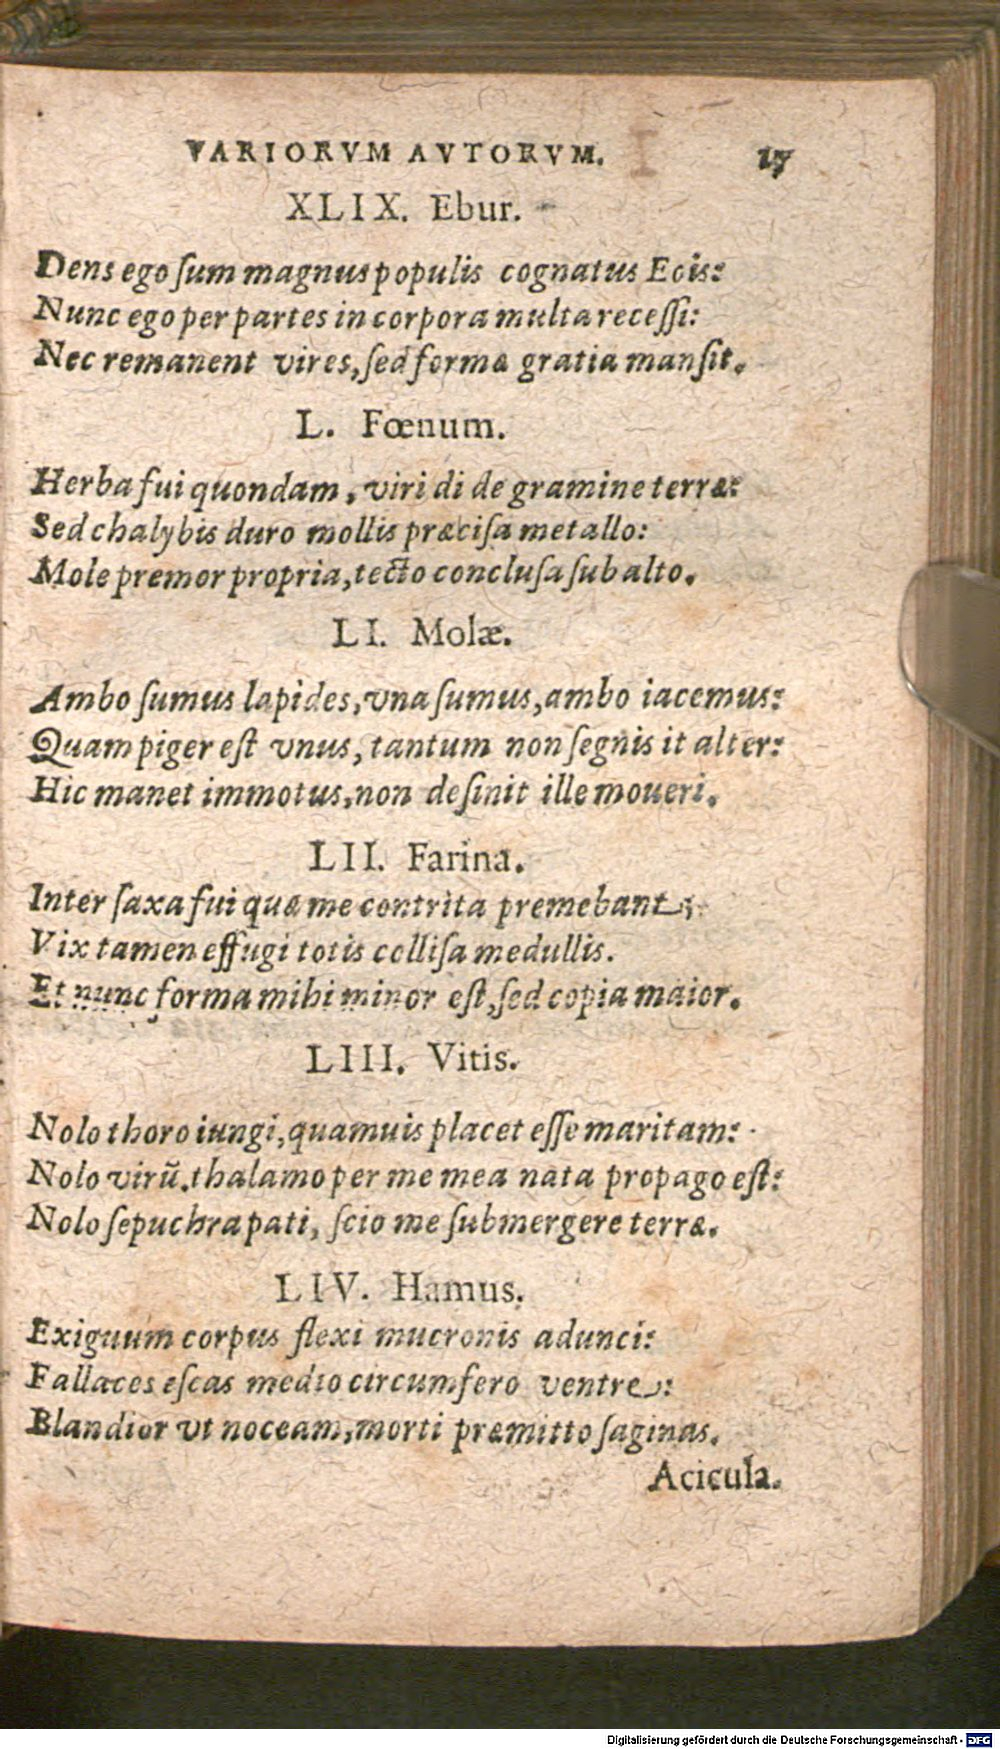 VARIORVM AVTORVM. 17
XLIX. Ebur.
Dens ego ſum magnus populis cognatus Eois:
Nunc ego per partes in corpora multa receſſi:
Nec remanent vires, ſed formæ gratia manſit.
L. Fœnum.
Herba fui quondam, viridi de gramine terræ:
Sed chalybis duro mollis præciſa metallo:
Mole premor propria, tecto concluſa ſub alto.
LI. Molæ.
Ambo ſumus lapides, vna ſumus, ambo iacemus:
Quam piger eſt vnus, tantum non ſegnis it alter:
Hic manet immotus, non deſinit ille moueri.
LII. Farina.
Inter ſaxa fui quæ me contrita premebant;
Vix tamen effugi totis colliſa medullis.
Et nunc forma mihi minor eſt, ſed copia maior.
LIII. Vitis.
Nolo thoro iungi, quamuis placet eſſe maritam:
Nolo virũ. thalamo per me mea nata propago eſt:
Nolo ſepuchra pati, ſcio me ſubmergere terræ.
LIV. Hamus.
Exiguum corpus flexi mucronis adunci:
Fallaces eſcas medio circumfero ventre:
Blandior vt noceam, morti præmitto ſaginas.
Acicula.
Digitalisierung gefördert durch die Deutsche Forschungsgemeinschaft - DFG